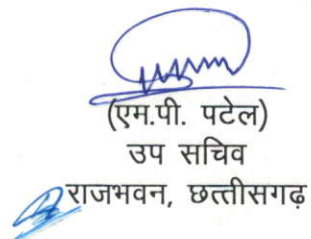 (एम.पी. पटेल)
उप सचिव
राजभवन, छत्तीसगढ़